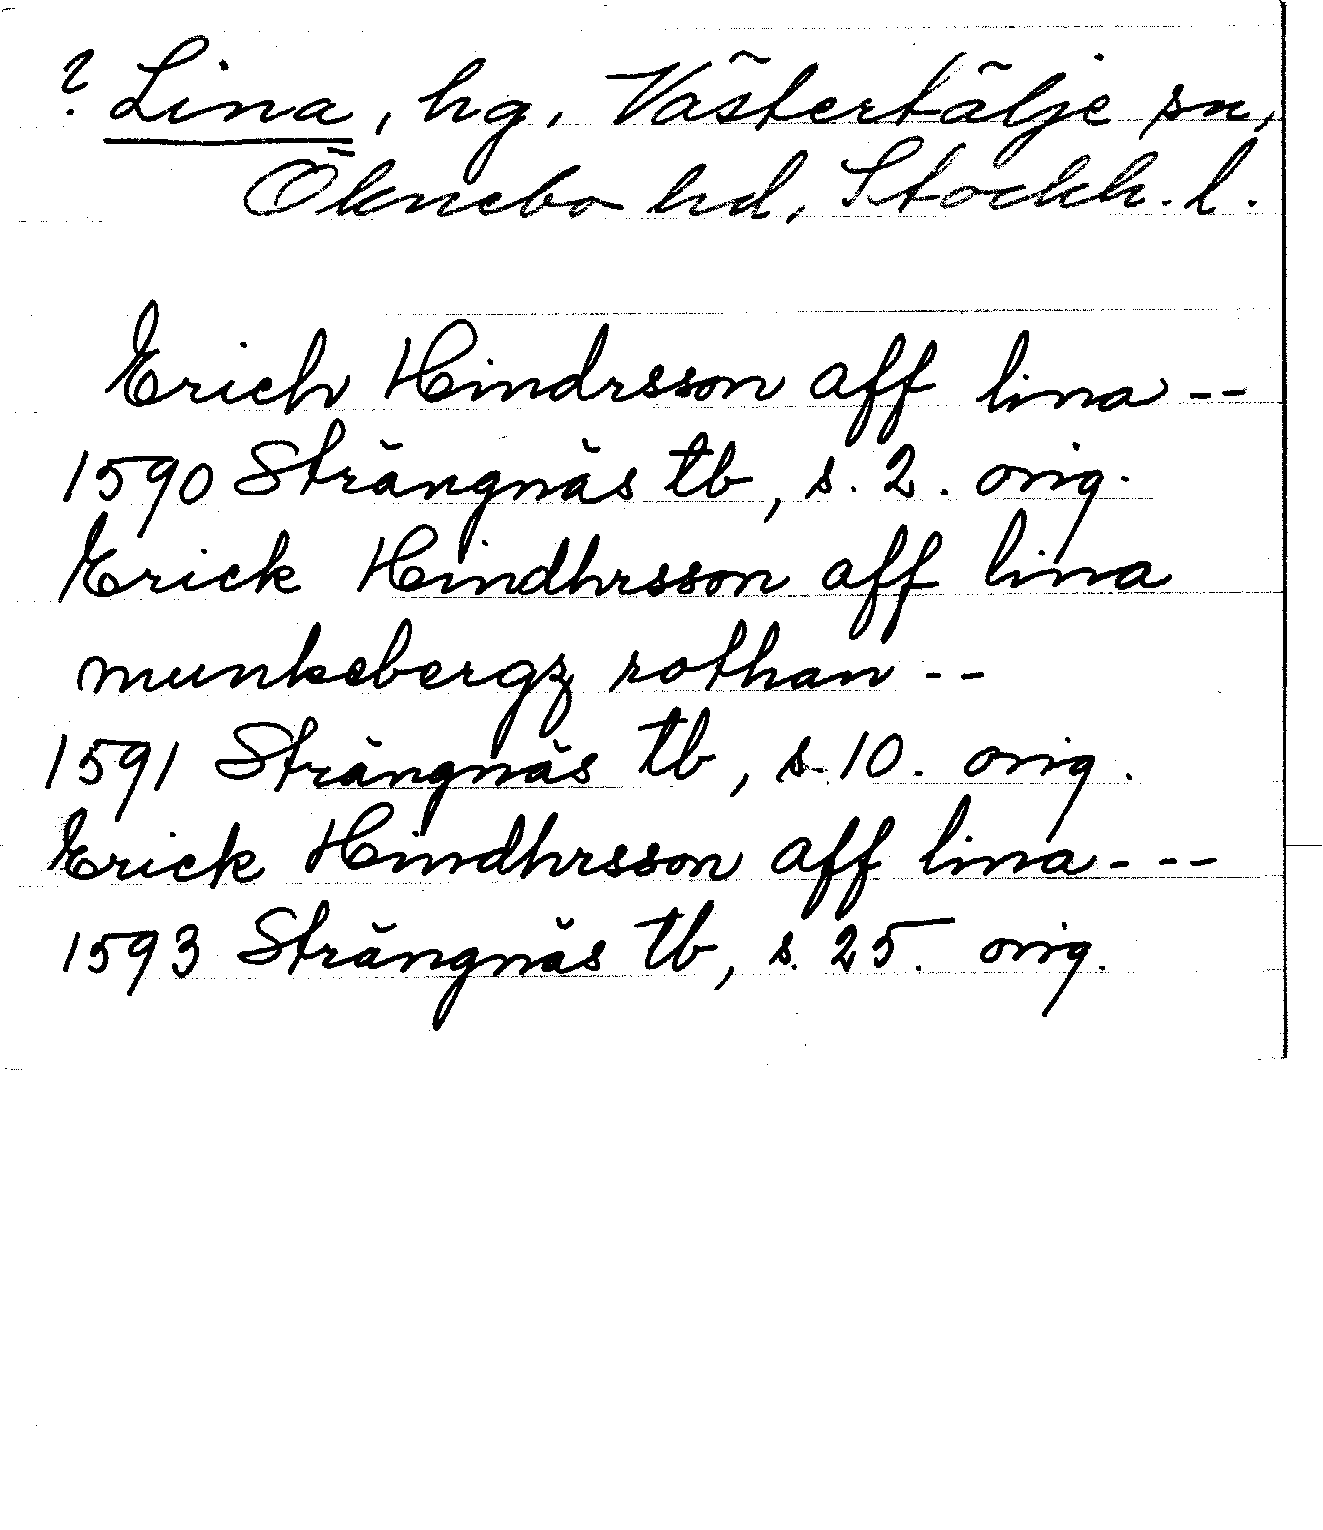 ? Lina, hg, Västertälje sn,
Öknebo hd, Stockh. l.
Erich Hindrsson aff lina --
1590 Strängnäs tb, s. 2. orig.
Erick Hindhrsson aff lina
munkebergz rothan --
1591 Strängnäs tb, s. 10. orig.
Erick Hindhrsson aff lina ---
1593 Strängnäs tb, s. 25. orig.